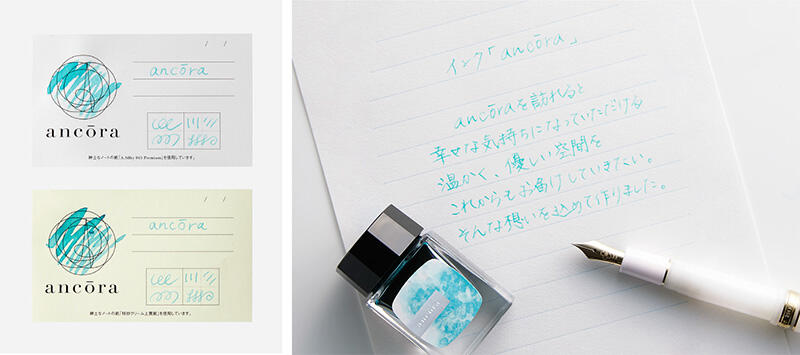 ancōra
ancōra
紳士なノートの紙「A.Silky 865 Premium」を使用しています。
ancōra
ancōra
紳士なノートの紙「特抄クリーム上質紙」を使用しています。
インク「ancōra」
ancōraを訪れると
幸せな気持ちになっていただける
温かく、優しい空間を
これからもお届けしていきたい。
そんな想いを込めて作りました。
ancōra